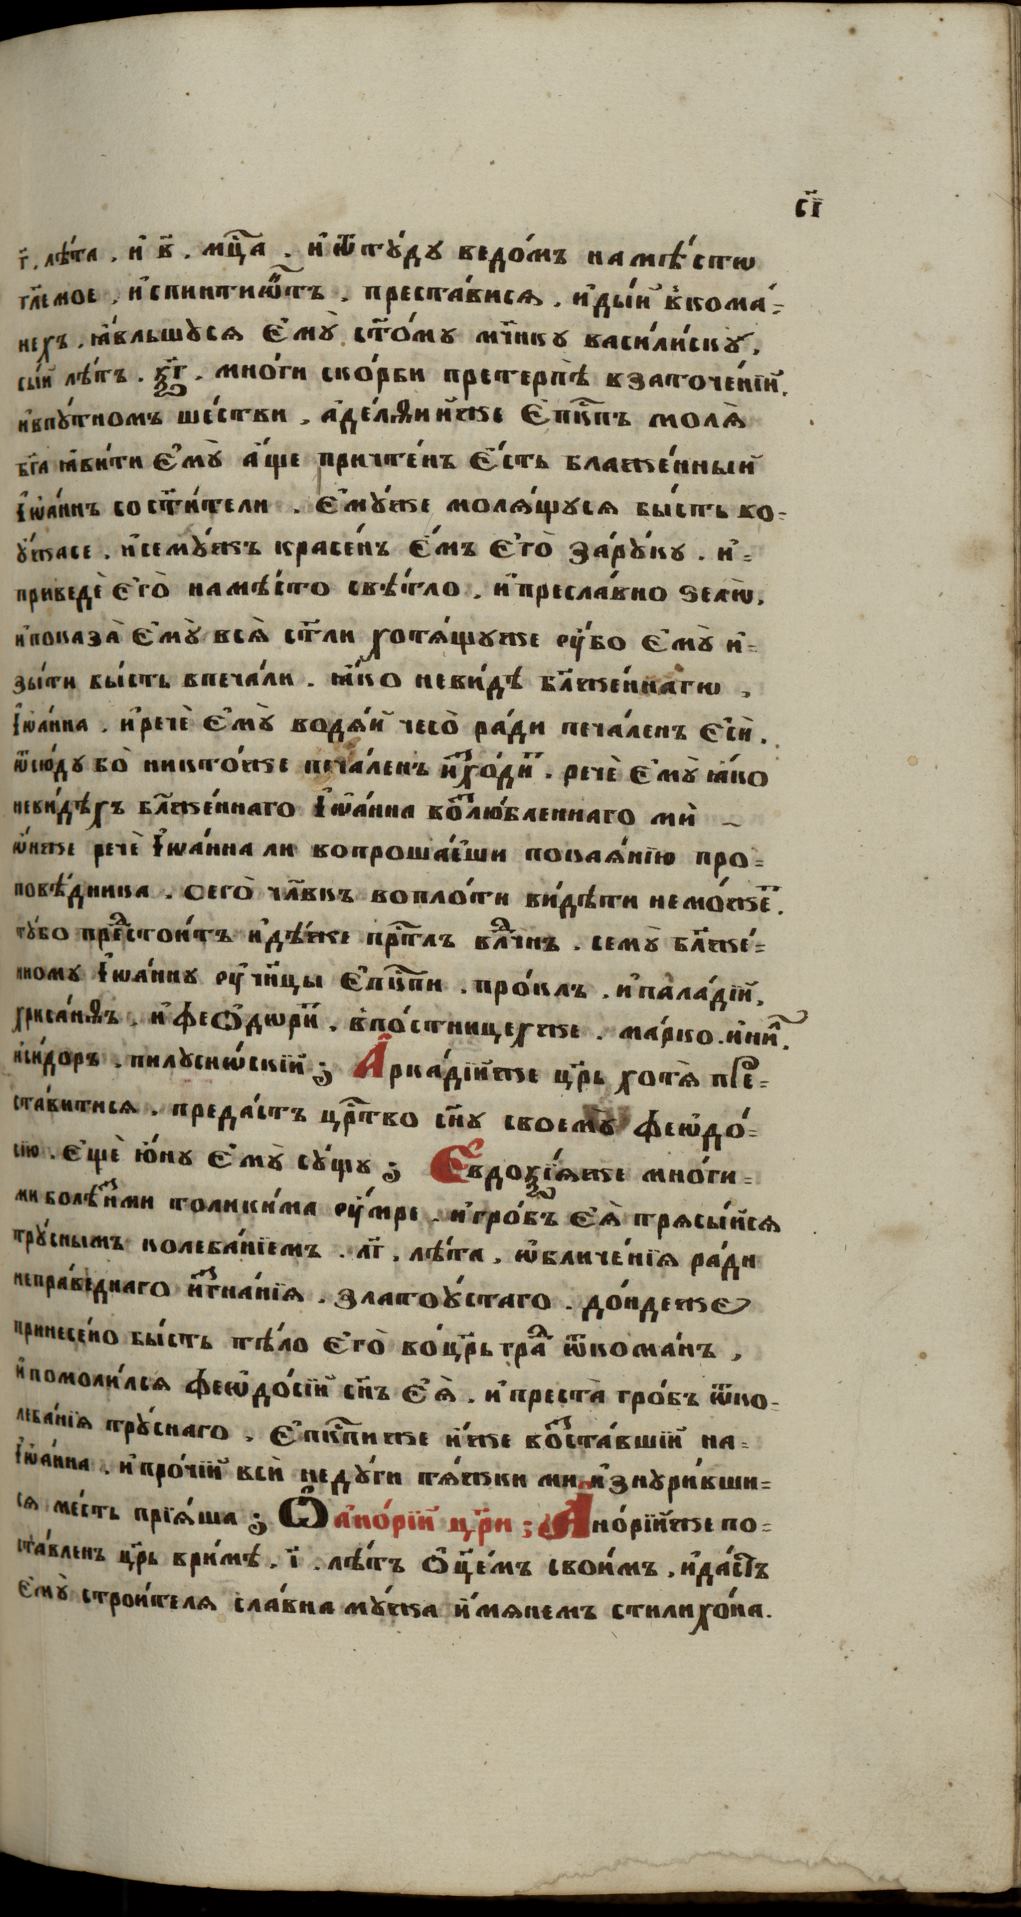 с҃і
г҃. лѣ́та. и҆ в҃. мц҃а. и҆ ѿтꙋ́дꙋ ведо́мъ на мѣ́стѡ
гл҃емое, и҆спинтиѡ́тъ. преста́висѧ. и҆ды́й в꙳кома́-
нехъ. ꙗ҆́вльшꙋсѧ є҆мꙋ̀ ст҃о́мꙋ мч҃нкꙋ васили́скꙋ,
сы́й лѣ́тъ. ѯ҃г. мно́ги ско́рби претерпѣ̀ в заточе́нїй.
и҆ впꙋ́тномъ ше́стви. а҆дельѳи́йже є҆пк҃пъ молѧ̀
бг҃а ꙗ҆ви́ти є҆мꙋ̀ а҆́ще причте́нъ є҆́сть блаже́нный
і҆ѡа́ннъ со ст҃и́тели. є҆мꙋ́же молѧ́щꙋсѧ бы́сть во-
ꙋ҆́жасе. и҆ се мꙋ́жъ красе́нъ є҆́мъ є҆го̀ за́рꙋкꙋ. и҆-
приведѐ є҆го̀ на мѣ́сто свѣ́тло, и҆ пресла́вно ѕелѡ̀,
и҆ показа̀ є҆мꙋ̀ всѧ̀ ст҃ли хотѧ́щꙋже оу҆́бо є҆мꙋ̀ и҆-
зы́ти бы́сть впеча́ли. ꙗ҆́ко неви́дѣ бл҃же́ннагѡ,
і҆ѡа́нна. и҆ речѐ є҆мꙋ̀ водѧ́й чесо̀ ра́ди печа́ленъ є҆сѝ.
ѿсю́дꙋ бо̀ никто́же печа́ленъ и҆схо́дит. речѐ є҆мꙋ̀ ꙗ҆́ко
неви́дѣхъ бл҃же́ннаго і҆ѡа́нна возлю́бленнаго мѝ
ѡ҆́нже речѐ і҆ѡа́нна ли вопроша́еши покаѧ́нїю про-
повѣ́дника. сего̀ чл҃вкъ во пло́ти ви́дѣти не мо́жет.
тꙋ́бо предстои́тъ и҆дѣ́же прⷭ҇тлъ влⷣчнъ. семꙋ̀ бл҃же́-
нномꙋ і҆ѡа́ннꙋ оу҆чн҃цы є҆пк҃пи. про́клъ. и҆ пала́дїй,
хриса́нѳъ. и҆ феѡ́дѡрит. в꙳по́стницехже. ма́рко. и҆ нил.
и҆си́доръ. пилꙋсиѡ́скїй; А҆рка́дїйже цр҃ь хотѧ̀ пре-
ста́витисѧ. преда́стъ црⷭ҇тво сн҃ꙋ своемꙋ̀ феѡдо́-
сїю. є҆щѐ ю҆́нꙋ є҆мꙋ̀ сꙋ́щꙋ; Є҆вдоѯі́ѧже мно́ги-
ми болѣ́зньми толики́ма оу҆́мре. и҆ гро́бъ є҆ѧ̀ трѧсы́йсѧ
трꙋ́снымъ колеба́нїемъ. л҃г. лѣ́та, ѡ҆бличе́нїѧ ра́ди
непра́веднаго и҆згна́нїѧ. златоꙋ́стаго. до́ндеже
принесе́но бы́сть тѣ́ло є҆го̀ во цр҃ьградⷣ ѿкома́нъ,
и҆ помоли́лсѧ феѡдо́сїй сн҃ъ є҆ѧ̀. и҆ преста̀ гро́бъ ѿко-
леба́нїѧ трꙋ́снаго. є҆пк҃пиже и҆́же воста́вшїй на-
і҆ѡа́нна. и҆ про́чїй всѝ недꙋ́ги тѧ́жкими и҆знꙋри́вши-
сѧ ме́сть прїѧ́ша; Ѽ а҆но́рїй цр҃и; А҆но́рїйже по-
ста́вленъ цр҃ь в ри́мѣ. і҃. лѣ́тъ ѻ҆ц҃е́мъ свои́мъ, и҆ да́стъ
є҆мꙋ̀ строи́телѧ сла́вна мꙋ́жа и҆́мѧнемъ стилихо́на.